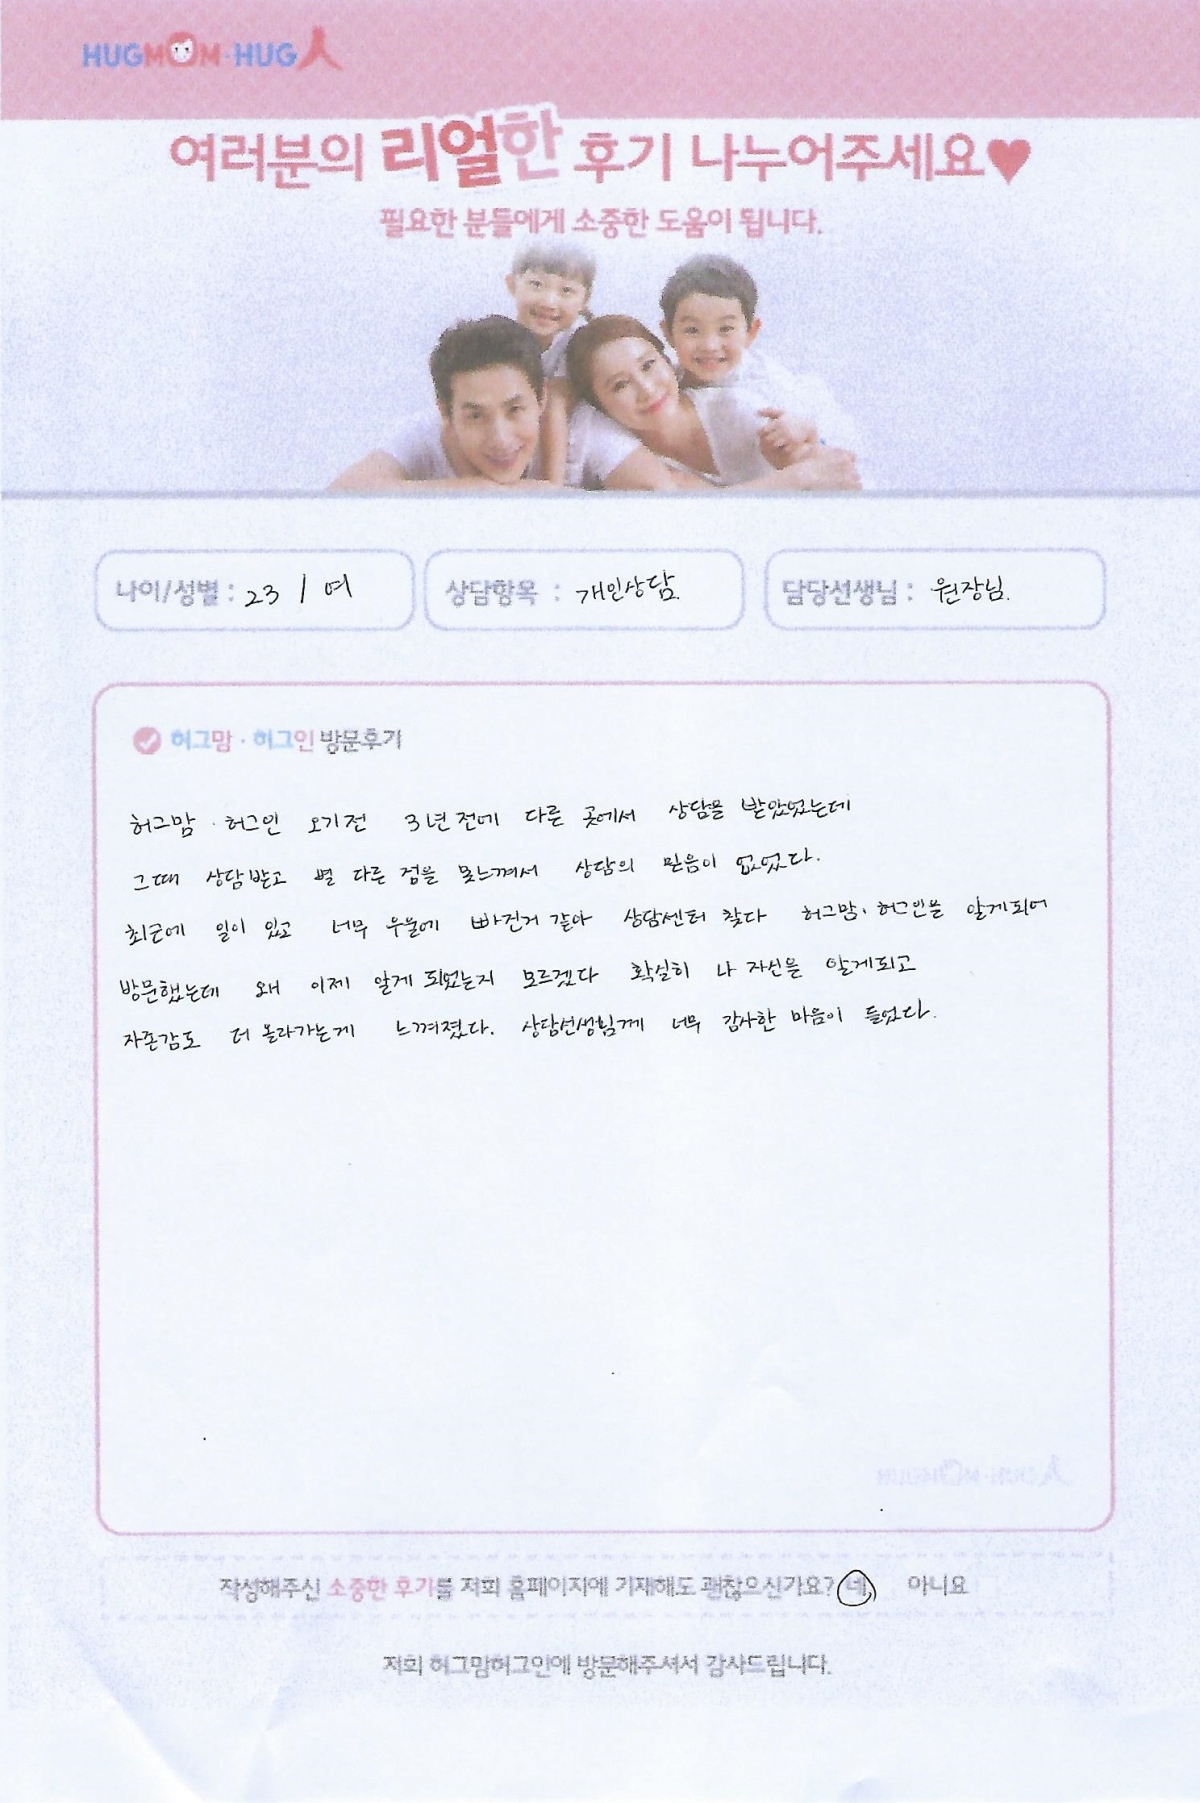 HUGMOM·HUG人
여러분의 리얼한 후기 나누어주세요♥
필요한 분들에게 소중한 도움이 됩니다.
나이/성별 : 23 / 여 상담항목 : 개인상담. 담당선생님 : 원장님.
허그맘 · 허그인 방문후기
허그맘 · 허그인 오기전 3년전에 다른 곳에서 상담을 받았었는데
그때 상담받고 별 다른 점을 못느껴서 상담의 믿음이 없었다.
최근에 일이 있고 너무 우울에 빠진거 같아 상담센터 찾다 허그맘·허그인을 알게되어
방문했는데 왜 이제 알게 되었는지 모르겠다 확실히 나 자신을 알게되고
자존감도 더 올라가는게 느껴졌다. 상담선생님께 너무 감사한 마음이 들었다.
작성해주신 소중한 후기를 저희 홈페이지에 기재해도 괜찮으신가요? 네 아니요
저희 허그맘허그인에 방문해주셔서 감사드립니다.